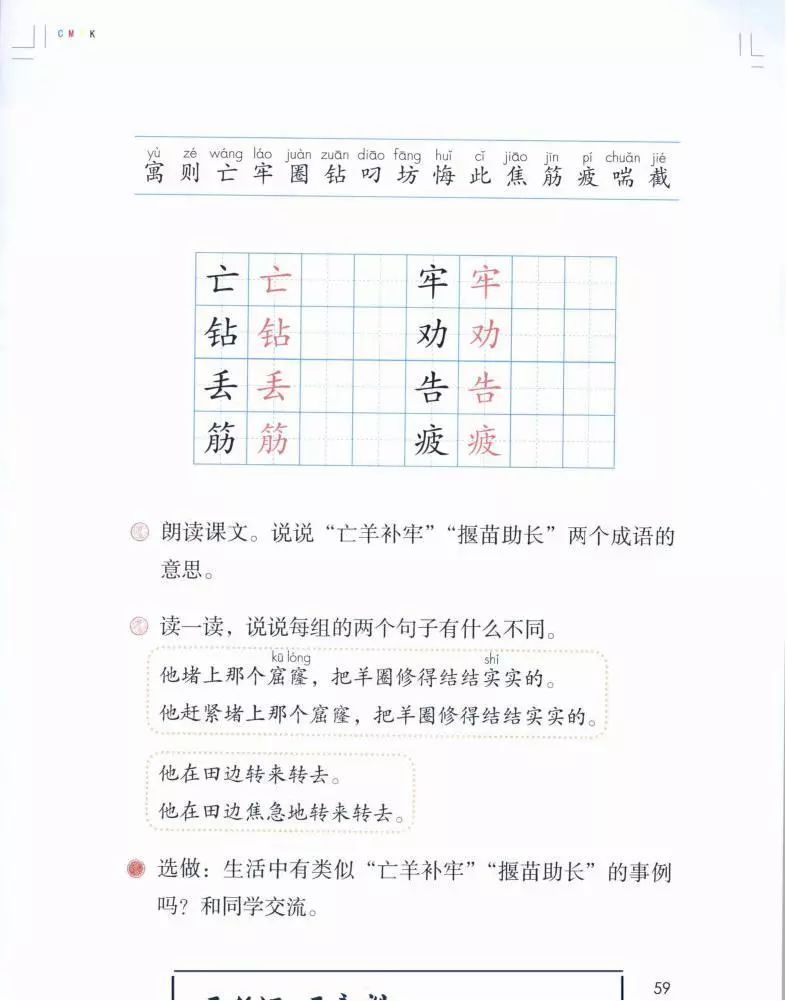 C M K
yù zé wáng láo juàn zuān diāo fāng huǐ cǐ jiāo jīn pí chuǎn jié
寓 则 亡 牢 圈 钻 叼 坊 悔 此 焦 筋 疲 喘 截
亡 亡 牢 牢
钻 钻 劝 劝
丢 丢 告 告
筋 筋 疲 疲
朗读课文。说说“亡羊补牢”“揠苗助长”两个成语的
意思。
读一读，说说每组的两个句子有什么不同。
kū lóng shí
他堵上那个窟窿，把羊圈修得结结实实的。
他赶紧堵上那个窟窿，把羊圈修得结结实实的。
他在田边转来转去。
他在田边焦急地转来转去。
选做：生活中有类似“亡羊补牢”“揠苗助长”的事例
吗？和同学交流。
59